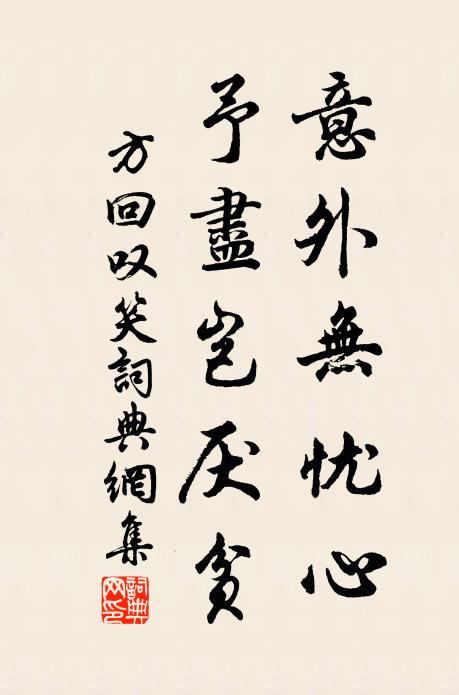 意外無忧心
予盡豈厌貧
方回叹笑詞典網集
詞典網印